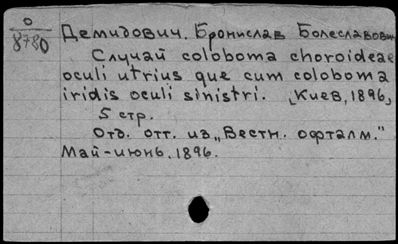 О
8780
Демидович. Бронислав Болеславович
Случай coloboma choroideae
oculi utrius que cum coloboma
iridis oculi sinistri. [Киев, 1896]
5 стр.
Отд. отт. из „Вестн. офталм."
Май-июнь. 1896.